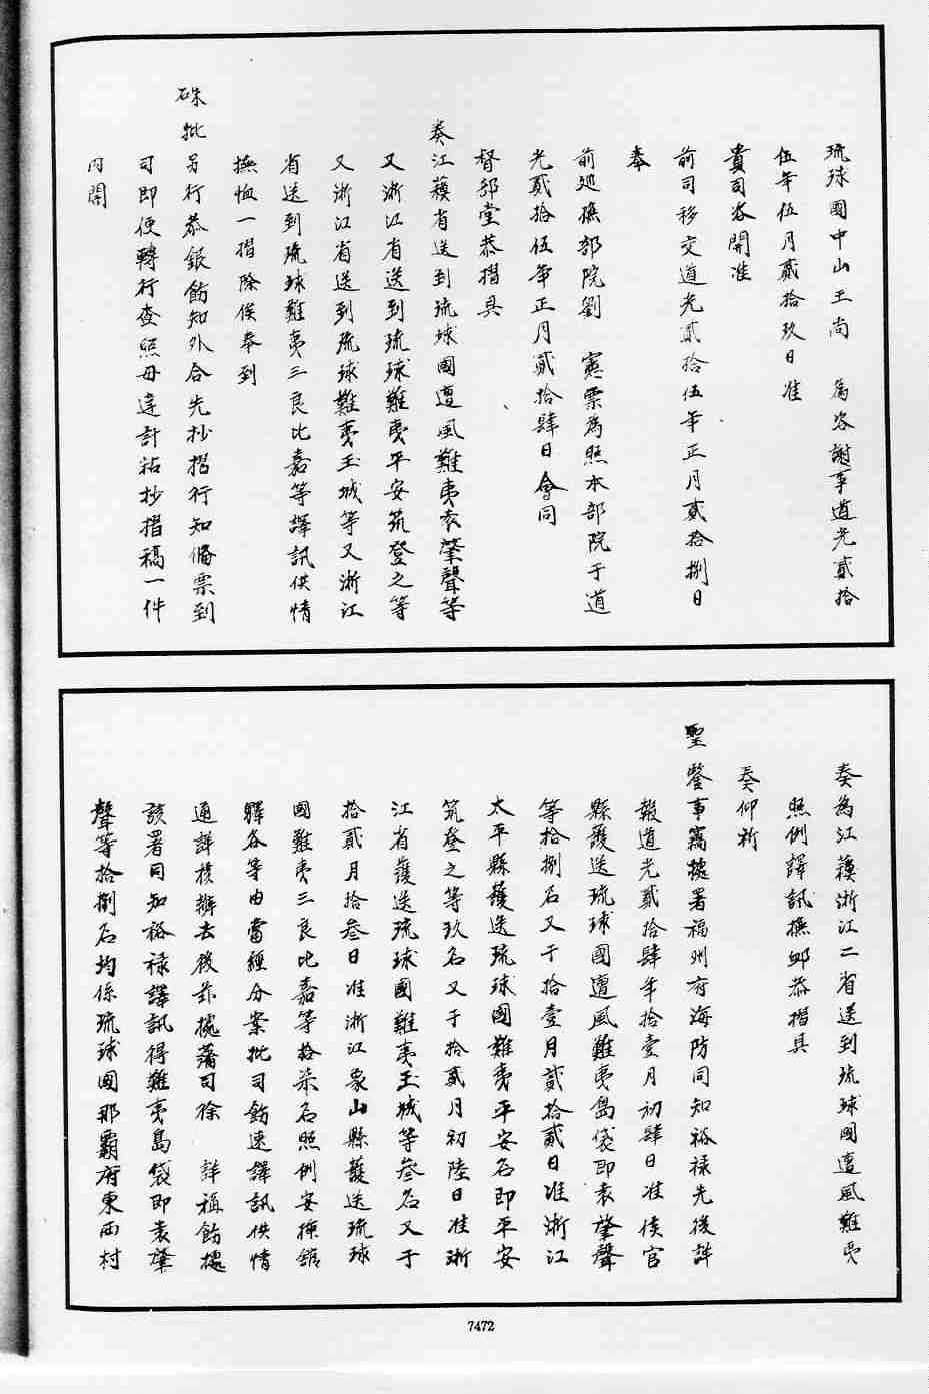 琉球國中山王尚　為咨謝事道光貳拾
伍年伍月貳拾玖日准
貴司咨開准
前司移交道光貳拾伍年正月貳拾捌日
奉
前巡撫部院劉　憲票為照本部院于道
光貳拾伍年正月貳拾肆日會同
督部堂恭摺具
奏江蘓省送到琉球國遭風難夷袁肇聲等
又浙江省送到琉球難夷平安筑登之等
又浙江省送到琉球難夷玉城等又浙江
省送到琉球難夷三良比嘉等譯訊供情
撫恤一摺除俟奉到
硃批另行恭錄飭知外合先抄摺行知備票到
司即便轉行查照毋違計粘抄摺稿一件
內閣
奏為江蘓浙江二省送到琉球國遭風難夷
照例譯訊撫卹恭摺具
奏仰祈
聖鑒事竊據署福州府海防同知裕祿先後詳
報道光貳拾肆年拾壹月初肆日准侯官
縣護送琉球國遭風難夷島袋即袁肇聲
等拾捌名又于拾壹月貳拾貳日准浙江
太平縣護送琉球國難夷平安名即平安
筑登之等玖名又于拾貳月初陸日准浙
江省護送琉球國難夷玉城等叁名又于
拾貳月拾叁日准浙江象山縣護送琉球
國難夷三良比嘉等拾柒名照例安揷館
驛各等由當經分案批司飭速譯訊供情
通詳核辦去後茲據藩司徐　詳稱飭據
該署同知裕祿譯訊得難夷島袋即袁肇
聲等拾捌名均係琉球國那霸府東西村
7472